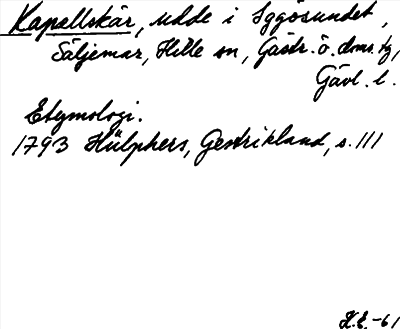 Kapallskär, udde i Iggösundet,
Säljemar, Hille sn, Gästr. ö. doms. tg,
Gävl. l.
Etymologi.
1793 Hülphers, Gestrikland, s. 111
K.E. -61